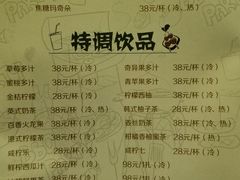 焦糖玛奇朵 38元/杯(冷、热) 28元/杯(冷、热)
特调饮品
草莓多汁 38元/杯(冷)
奇异果多汁 38元/杯(冷)
蜜桃多汁 38元/杯(冷)
青苹果多汁 38元/杯(冷)
金桔柠檬 28元/杯(冷)
柠檬西柚 38元/杯(冷)
英式奶茶 28元/杯(冷、热)
韩式柚子茶 28元/杯(冷、热)
百香火龙果 38元/杯(冷)
香丝奶茶 28元/杯(冷、热)
港式柠檬茶 28元/杯(冷)
柑橘香柚蜜茶 28元/杯
咸柠乐 28元/杯(冷)
咸柠七 28元/杯(冷)
鲜榨西瓜汁 98元/扎(冷)
98元/扎(冷)